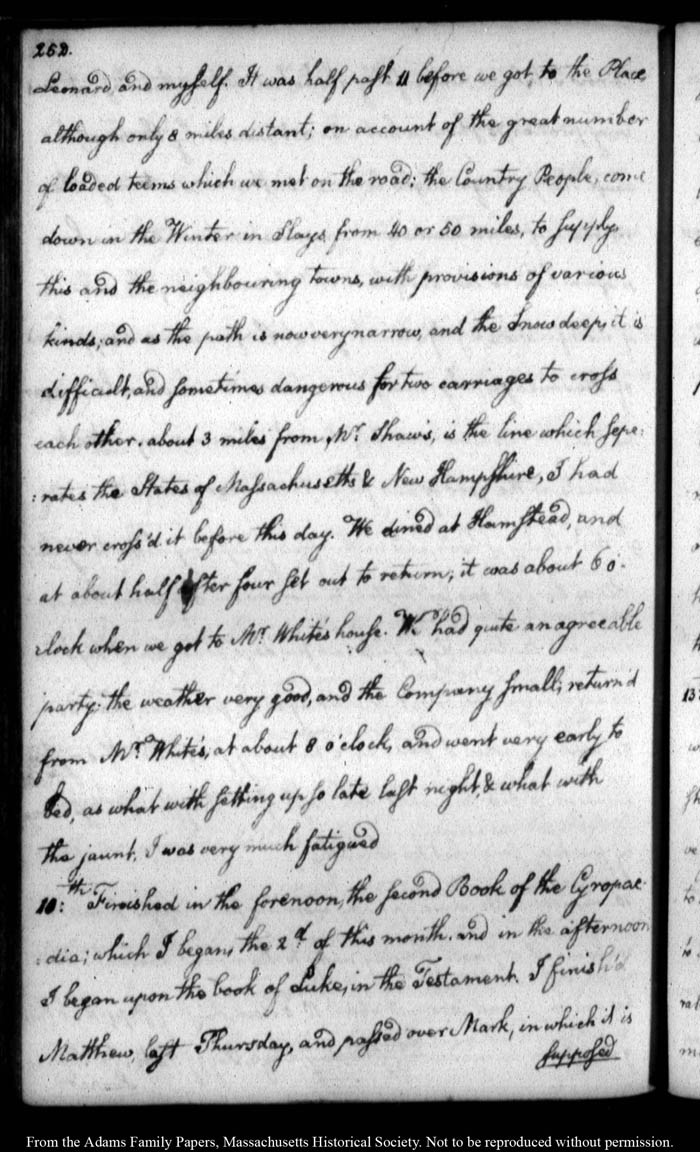 252.
Leonard, and myself. It was half past 11 before we got, to the Place
although only 8 miles distant; on account of the great number
of loaded teems which we met on the road; the Country People, come
down in the Winter in Slays from 40 or 50 miles, to supply
this and the neighbouring towns, with provisions of various
kinds; and as the path is now very narrow, and the Snow deep, it is
difficult, and sometimes dangerous for two carriages to cross
each other. about 3 miles from, Mr. Shaw's, is the line which sepe:
:rates the States of Massachusetts & New Hampshire, I had
never cross'd it before this day. We dined at Hamstead, and
at about half after four set out to return; it was about 6 o'
clock when we got to Mr. White's house. We had quite an agreeable
party: the weather very good, and the Company small; return'd
from Mr. White's, at about 8 o'clock, and went very early to
bed, as what with setting up so late last night, & what with
the jaunt, I was very much fatigued
10:th Finished in the forenoon, the second Book of the Cyropae:
:dia; which I began, the 2d. of this month. and in the afternoon
I began upon the book of Luke, in the Testament. I finish'd
Matthew, last Thursday, and passed over Mark, in which it is
supposed
13
From the Adams Family Papers, Massachusetts Historical Society. Not to be reproduced without permission.